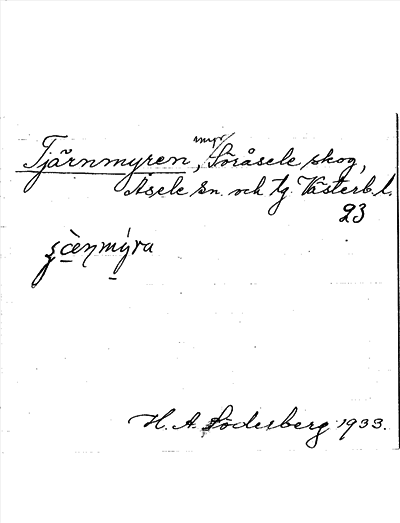 Tjärnmyren, myr, Söråsele skog,
Åsele sn. och tg. Västerb. l.
23
H. A. Söderberg 1933.